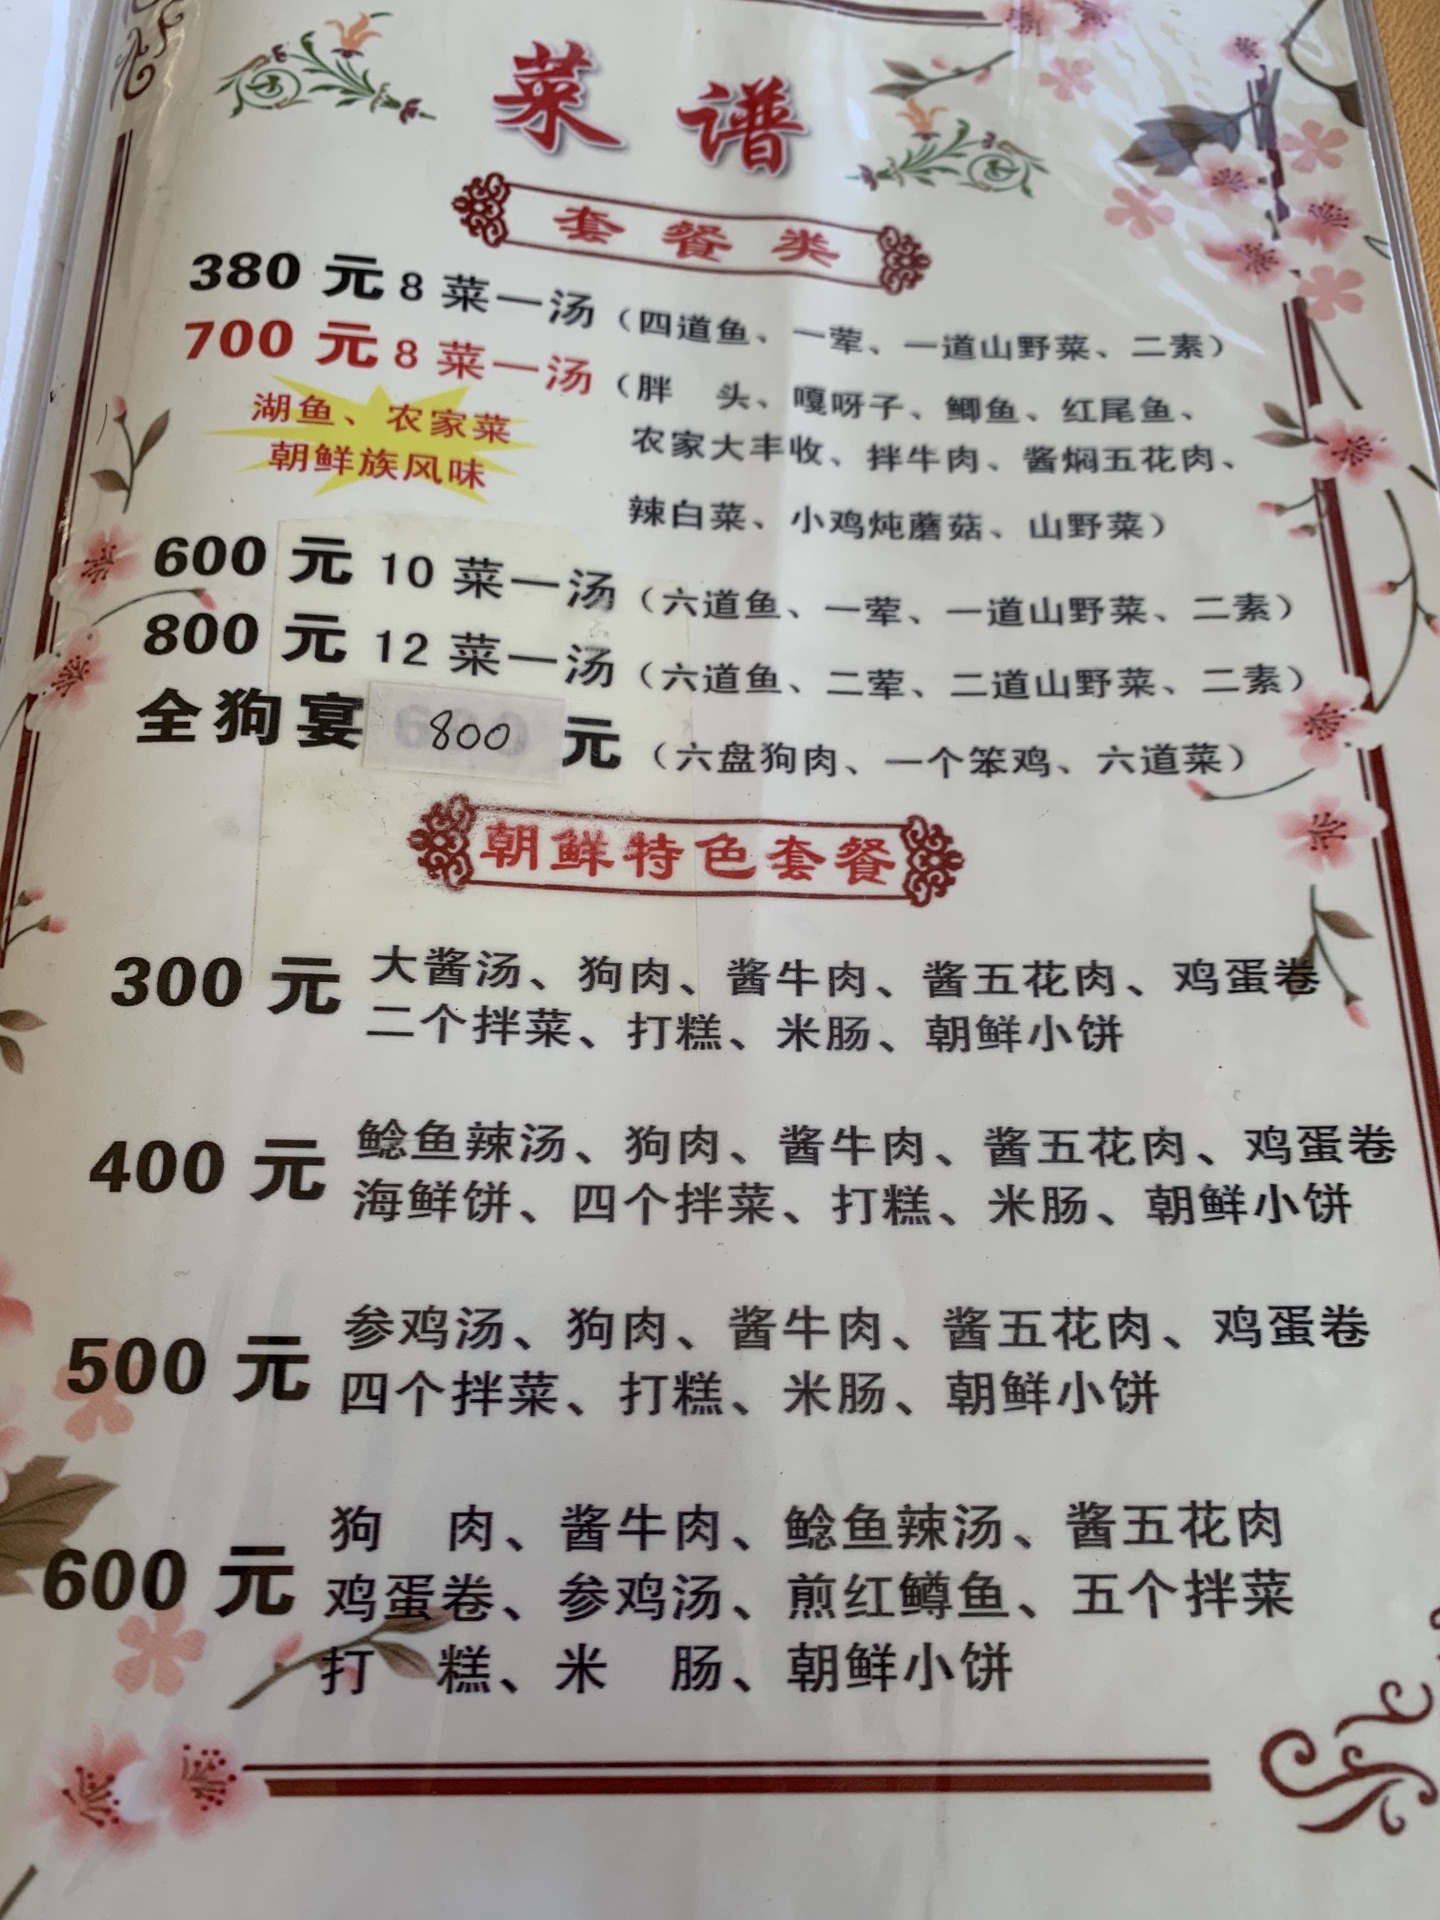 菜谱
套餐类
380 元 8 菜一汤（四道鱼、一荤、一道山野菜、二素）
700 元 8 菜一汤（胖 头、嘎呀子、鲫鱼、红尾鱼、
农家大丰收、拌牛肉、酱焖五花肉、
辣白菜、小鸡炖蘑菇、山野菜）
湖鱼、农家菜
朝鲜族风味
600 元 10 菜一汤（六道鱼、一荤、一道山野菜、二素）
800 元 12 菜一汤（六道鱼、二荤、二道山野菜、二素）
全狗宴 800 元（六盘狗肉、一个笨鸡、六道菜）
朝鲜特色套餐
300 元 大酱汤、狗肉、酱牛肉、酱五花肉、鸡蛋卷
二个拌菜、打糕、米肠、朝鲜小饼
400 元 鲶鱼辣汤、狗肉、酱牛肉、酱五花肉、鸡蛋卷
海鲜饼、四个拌菜、打糕、米肠、朝鲜小饼
500 元 参鸡汤、狗肉、酱牛肉、酱五花肉、鸡蛋卷
四个拌菜、打糕、米肠、朝鲜小饼
600 元 狗 肉、酱牛肉、鲶鱼辣汤、酱五花肉
鸡蛋卷、参鸡汤、煎红鳟鱼、五个拌菜
打 糕、米 肠、朝鲜小饼